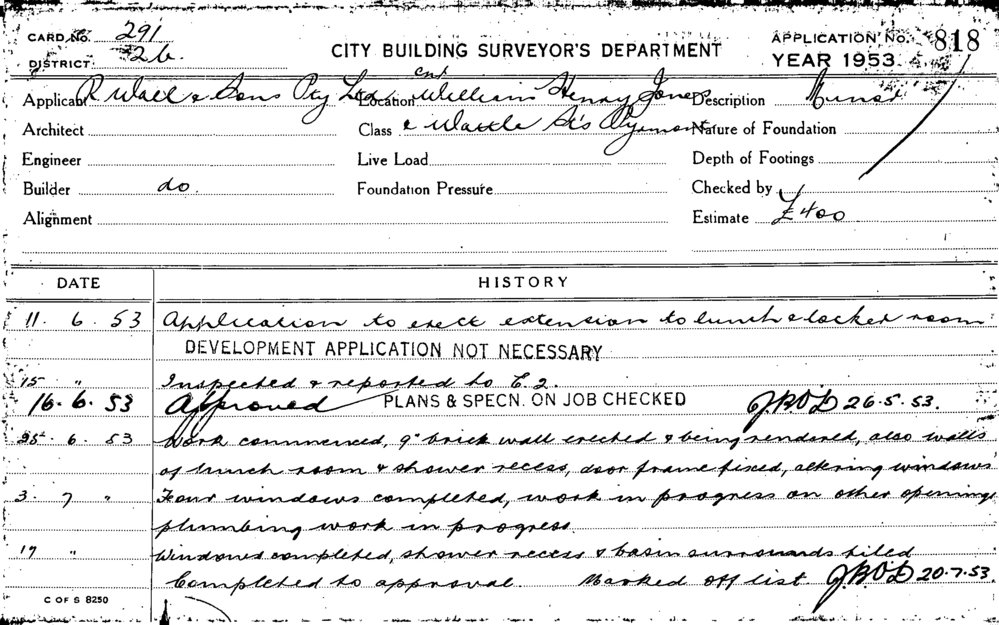 CARD NO. 291
CITY BUILDING SURVEYOR'S DEPARTMENT
APPLICATION NO. 818
DISTRICT 26
YEAR 1953
Applicant R Wall & Sons Pty Ltd Location cnr William Henry Jones Description Minor
Architect Class & Wattle St's Pyrmont Nature of Foundation
Engineer Live Load Depth of Footings
Builder do Foundation Pressure Checked by
Alignment Estimate £400
DATE HISTORY
11. 6. 53 Application to erect extension to lunch & locker room
DEVELOPMENT APPLICATION NOT NECESSARY
15 " Inspected & reported to E.2.
16. 6. 53 Approved PLANS & SPECN. ON JOB CHECKED 26.5.53.
25. 6. 53 Work commenced, 9" brick wall erected & being rendered, also walls
of lunch room & shower recess, door frame fixed, altering windows
3. 7 " Four windows completed, work in progress on other openings
plumbing work in progress
17 " Windows completed, shower recess & basin surrounds tiled
Completed to approval. Marked off list 20.7.53
C OF S 8250